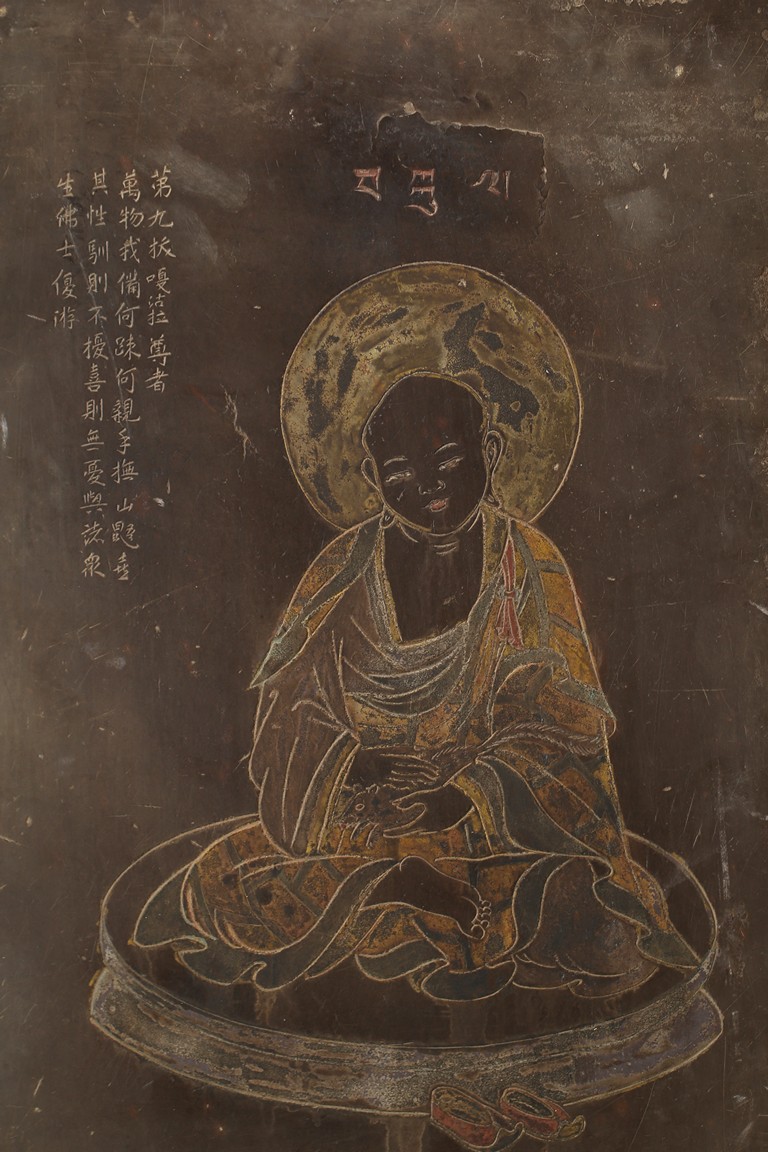 བ ཀུ ལ
第九拔嘎沽拉尊者
萬物我備何踈何親手撫山喜
其性馴則不擾喜則無憂與諸衆
生佛士優游